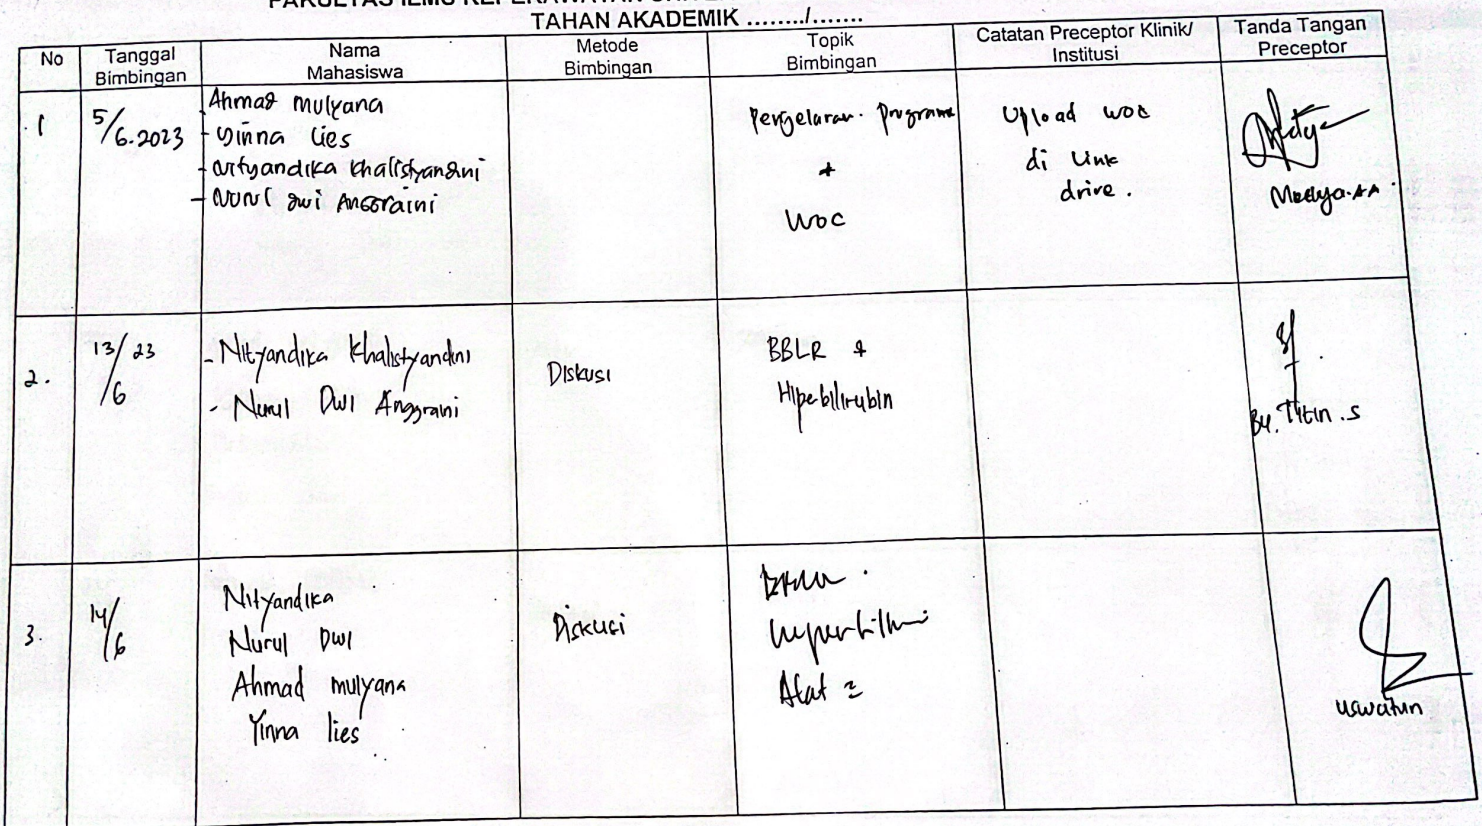 TAHAN AKADEMIK ......../.......
No
Tanggal
Bimbingan
Nama
Mahasiswa
Metode
Bimbingan
Topik
Bimbingan
Catatan Preceptor Klinik/
Institusi
Tanda Tangan
Preceptor
1
5/6.2023
Ahmad mulyana
- Yinna lies
- Nityandika Khalistyandini
- Nurul Dwi Anggraini
Pergelaran. Program
+
WOC
Upload woc
di link
drive.
Medya.AA
2.
13/23
/6
- Nityandika Khalistyandini
- Nurul Dwi Anggraini
Diskusi
BBLR &
Hiperbilirubin
By. Titin.S
3.
14/6
Nityandika
Nurul Dwi
Ahmad mulyana
Yinna lies
Diskusi
Alat 2
uswatun